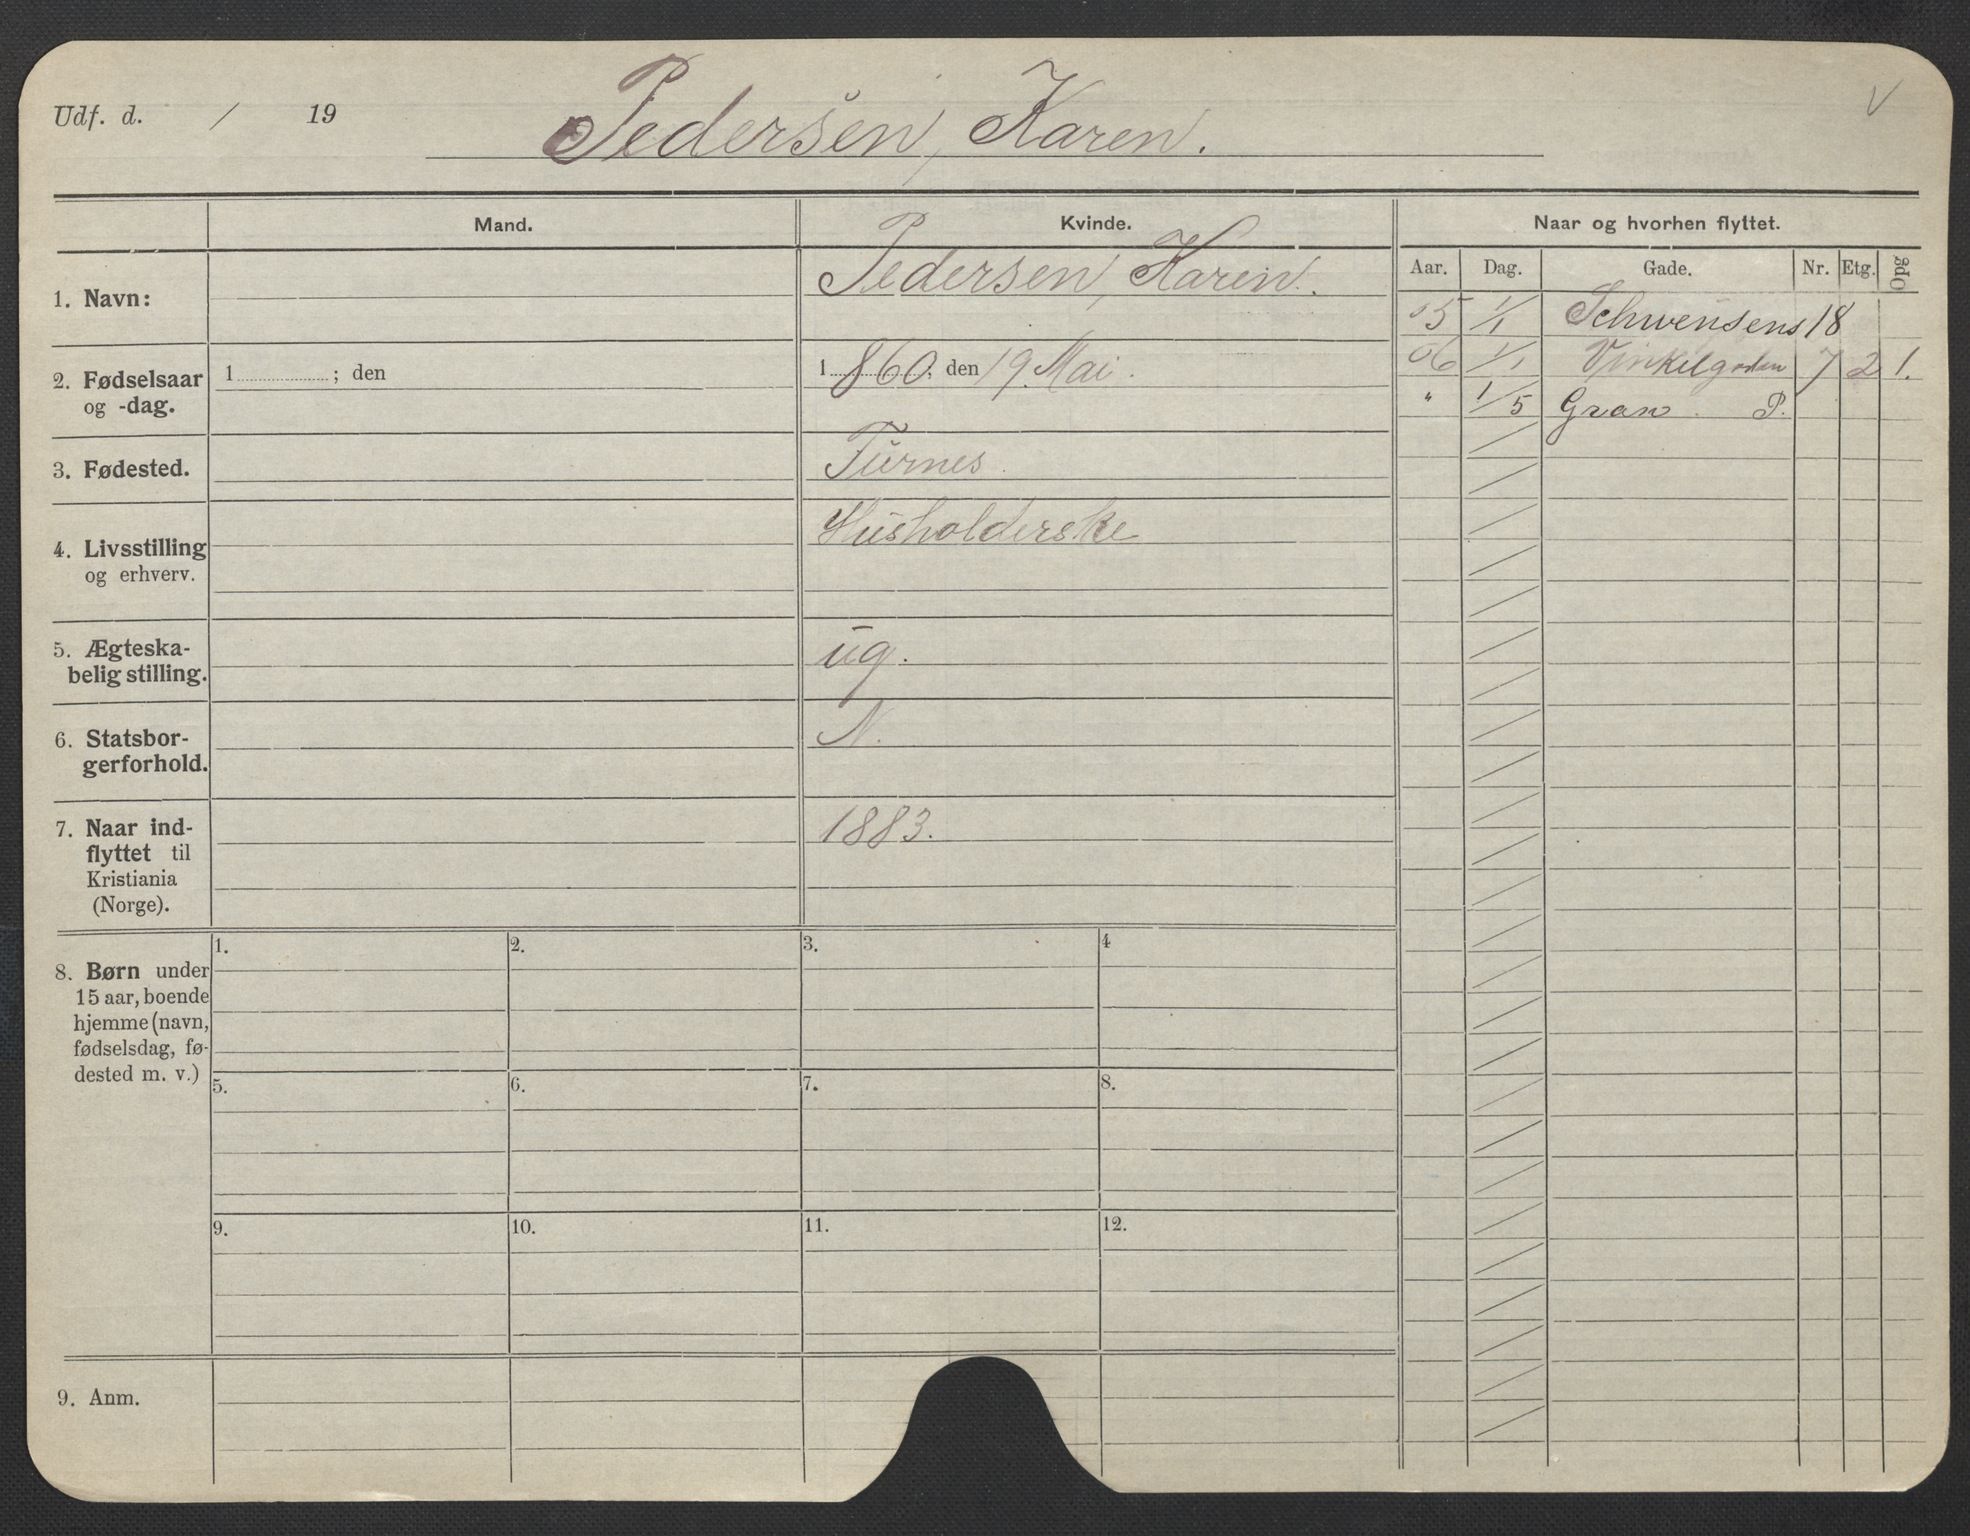 Udf. d. / 19
Pedersen, Karen.
V
Mand.
Kvinde.
Naar og hvorhen flyttet.
Aar. Dag. Gade. Nr. Etg. Opg
1. Navn:
Pedersen, Karen.
2. Fødselsaar
og -dag.
1 ; den
1860; den 19. Mai.
3. Fødested.
Furnes.
4. Livsstilling
og erhverv.
Husholderske
5. Ægteska-
belig stilling.
ug.
6. Statsbor-
gerforhold.
N.
7. Naar ind-
flyttet til
Kristiania
(Norge).
1883.
05 1/1 Schwensens 18
06 1/1 Vinkelgaden 7 2 1.
" 1/5 Gran. P.
8. Børn under
15 aar, boende
hjemme (navn,
fødselsdag, fø-
dested m. v.)
1. 2. 3. 4
5. 6. 7. 8.
9. 10. 11. 12.
9. Anm.